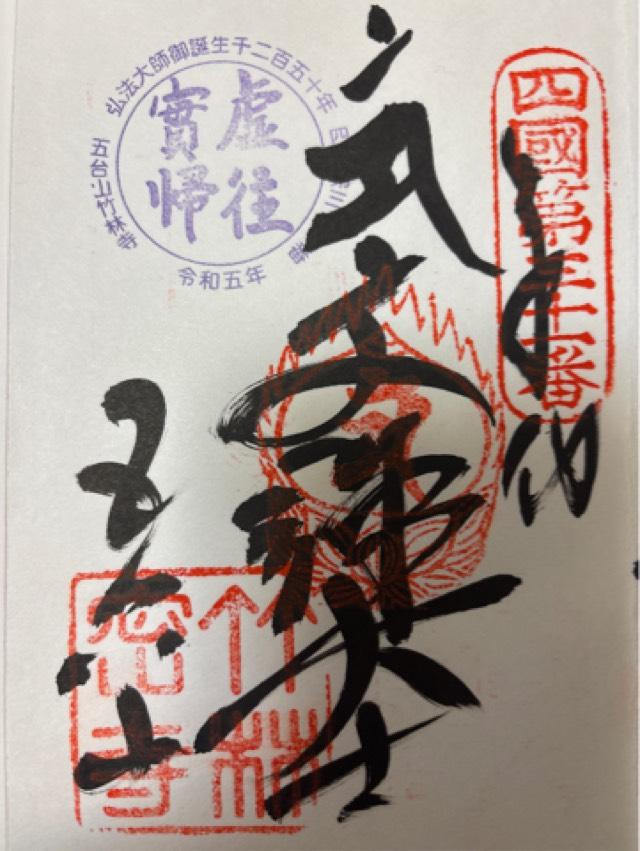 四國第三十一番
奉納
文殊大士
五台山
弘法大師御誕生千二百五十年
虚往
實帰
五台山竹林寺
令和五年
竹林
密寺